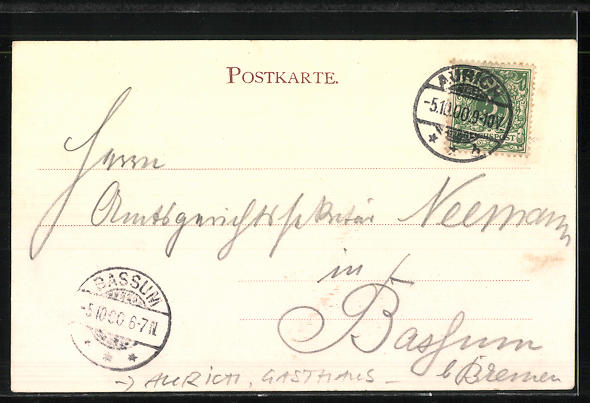 POSTKARTE.
AURICH
-5.10.00.9-10V.
REICHSPOST
Herrn
Amtsgerichtssekretär Neemann
in
Bassum
b/Bremen
BASSUM
-5.10.00.6-7N.
→ AURICH, GASTHAUS -